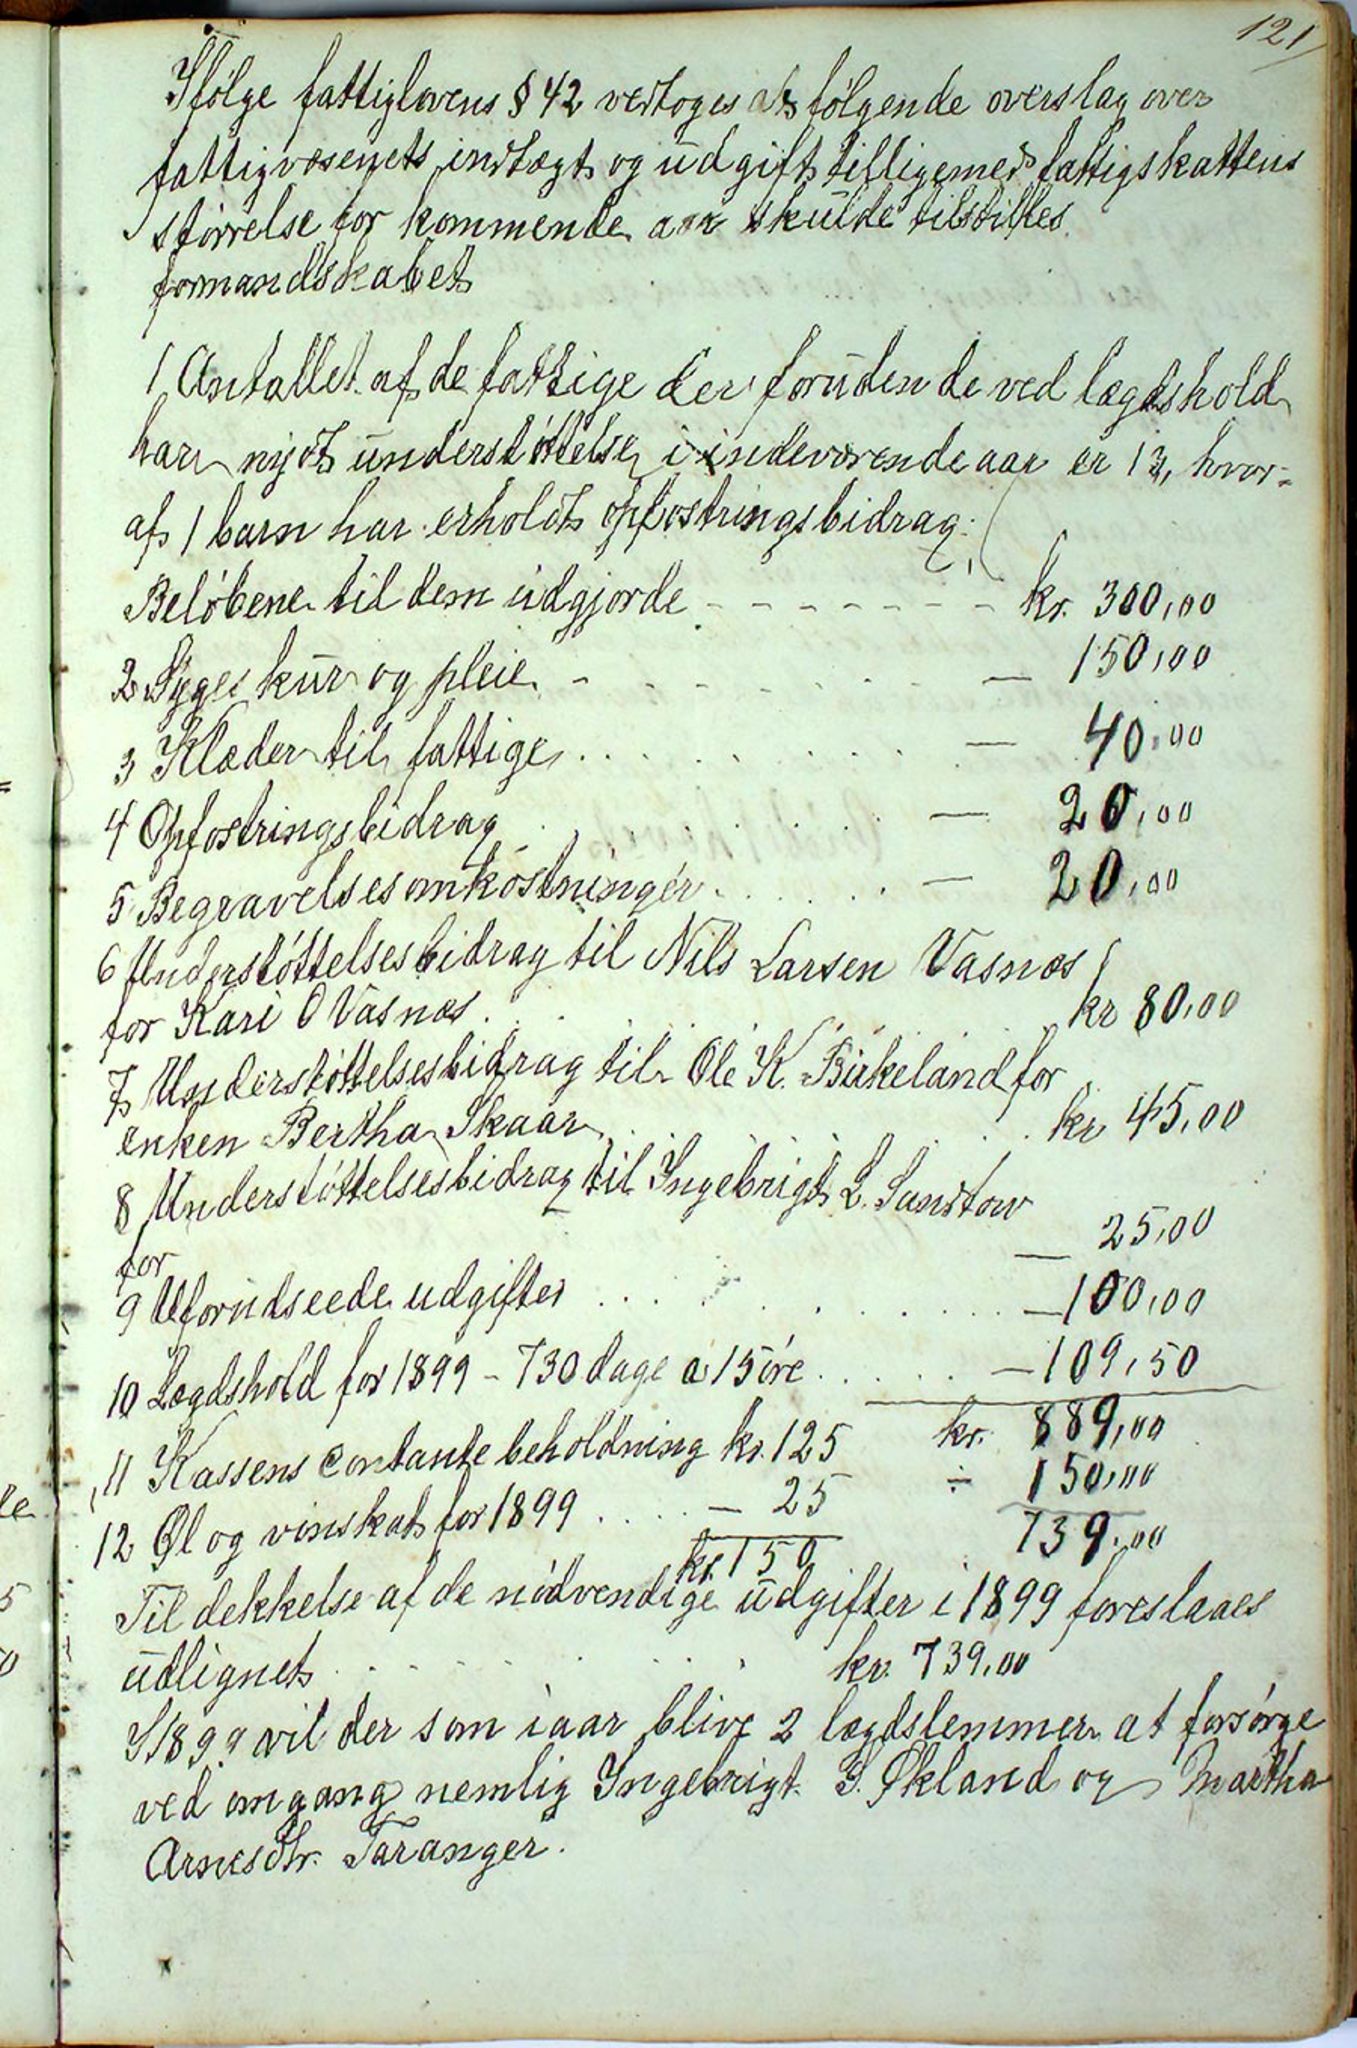 121
Ifølge fattiglovens § 42 vedtoges at følgende overslag over
fattigvæsenets indtægt og udgift tilligemed fattigskattens
størrelse for kommende aar skulde tilstilles
formandskabet
1 Antallet af de fattige der foruden de ved lægdshold
har nydt understøttelse i indeværende aar er 13, hvor-
af 1 barn har erholdt opfostringsbidrag.
Beløbene til dem udgjorde - - - - - - - kr. 300,00
2 Syges kur og pleie - - - - - - - — 150,00
3 Klæder til fattige . . . . . . . — 40,00
4 Opfostringsbidrag . . . . . . — 20,00
5 Begravelsesomkostninger . . . . . — 20,00
6 Understøttelsesbidrag til Nils Larsen Vasnæs
for Kari O Vasnæs . . . . . . . kr 80,00
7 Understøttelsesbidrag til Ole K. Birkeland for
enken Bertha Skaar . . . . . . . kr 45,00
8 Understøttelsesbidrag til Ingebrigt L. Sundtow
for — 25,00
9 Uforudseede udgifter . . . . . . . — 100,00
10 Lægdshold for 1899 - 730 dage a 15 øre . . . . . — 109,50
11 Kassens contante beholdning kr. 125 kr. 889,00
12 Øl og vinskat for 1899 . . . . — 25 ÷ 150,00
kr. 150 739,00
Til dekkelse af de nødvendige udgifter i 1899 foreslaaes
udlignet . . . . . . . kr. 739,00
I 1899 vil der som iaar blive 2 lægdslemmer at forsørge
ved omgang nemlig Ingebrigt. S. Økland og Martha
Arnesdtr. Taranger.